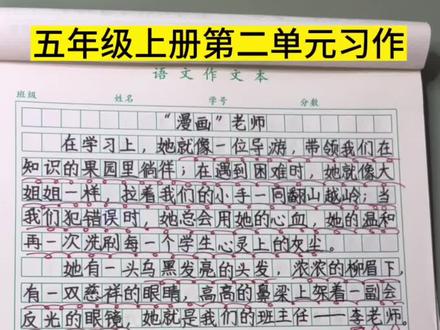 五年级上册第二单元习作
语文作文本
班级 姓名 学号 分数
“漫画”老师
在学习上，她就像一位导游，带领我们在
知识的果园里徜徉；在遇到困难时，她就像大
姐姐一样，拉着我们的小手一同翻山越岭；当
我们犯错误时，她总会用她的心血，她的温和
再一次洗刷每一个学生心灵上的灰尘。
她有一头乌黑发亮的头发，浓浓的柳眉下，
有一双慈祥的眼睛，高高的鼻梁上架着一副会
反光的眼镜，她就是我们的班主任——李老师。